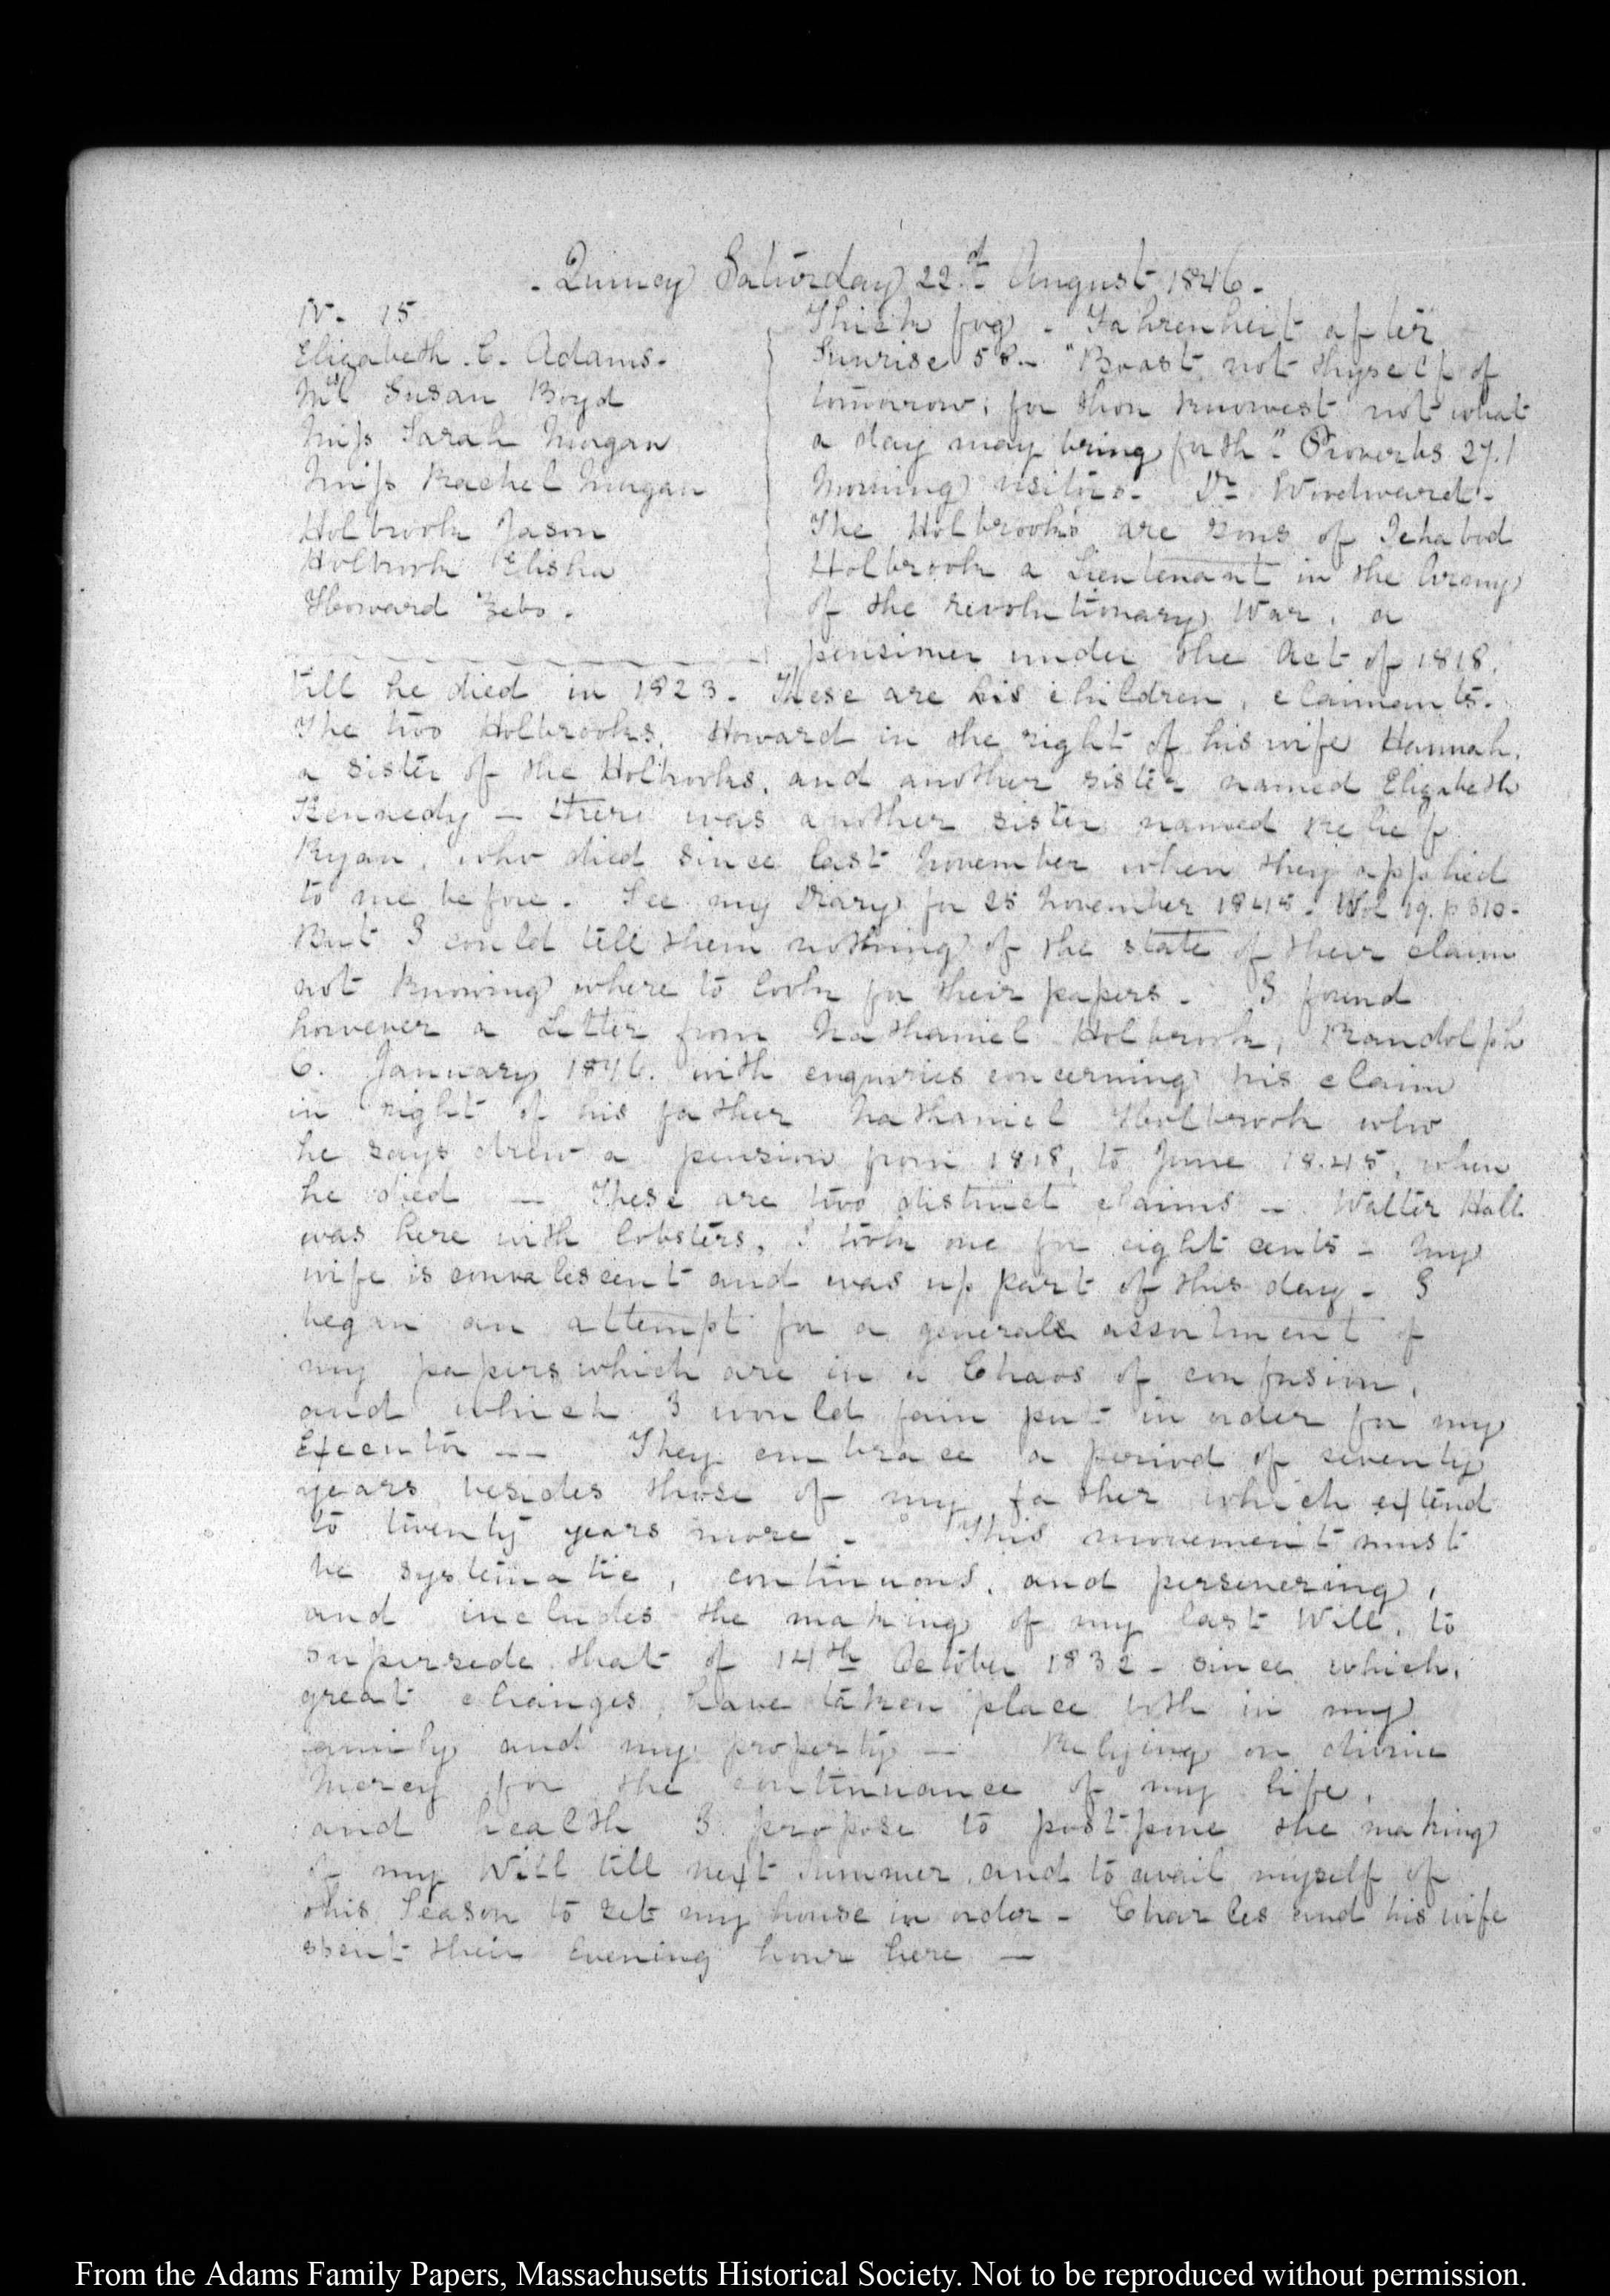 Quincy Saturday 22d. August 1846.
IV. 15
Elizabeth. C. Adams.
Mrs Susan Boyd
Miss Sarah Morgan
Miss Rachel Morgan
Holbrook Jason
Holbrook Elisha
Howard Zebo.
Thick fog. Fahrenheit after
Sunrise 58. "Boast not thyself of
tomorrow; for thou knowest not what
a day may bring forth." Proverbs 27.1
Morning visitors. Dr. Woodward.
The Holbrooks are sons of Ichabod
Holbrook a Lieutenant in the Army
of the revolutionary War, a
pensioner under the Act of 1818.
till he died in 1823. These are his children, claimants.
The two Holbrooks, Howard in the right of his wife Hannah,
a sister of the Holbrooks, and another sister named Elizabeth
Kennedy — there was another sister named Relief
Ryan, who died since last November when they applied
to me before. See my Diary for 25 November 1845. Vol 19. p 310.
But I could tell them nothing of the state of their claim
not knowing where to look for their papers. I found
however a Letter from Nathaniel Holbrook, Randolph
6. January 1846. with enquiries concerning his claim
in right of his father Nathaniel Holbrook who
he says drew a pension from 1818, to June 1845, when
he died — These are two distinct claims — Walter Hall
was here with lobsters, I took one for eight cents — My
wife is convalescent and was up part of this day — I
began an attempt for a general assortment of
my papers which are in a Chaos of confusion,
and which I would fain put in order for my
Executor -- They embrace a period of seventy
years besides those of my father which extend
to twenty years more. This movement must
be systematic, continuous, and persevering,
and includes the making of my last Will, to
supersede that of 14th October 1832 — since which,
great changes, have taken place both in my
family and my property — Relying on divine
Mercy for the continuance of my life,
and health I propose to postpone the making
of my Will till next Summer, and to avail myself of
this Season to set my house in order — Charles and his wife
spent their Evening hour here —
From the Adams Family Papers, Massachusetts Historical Society. Not to be reproduced without permission.